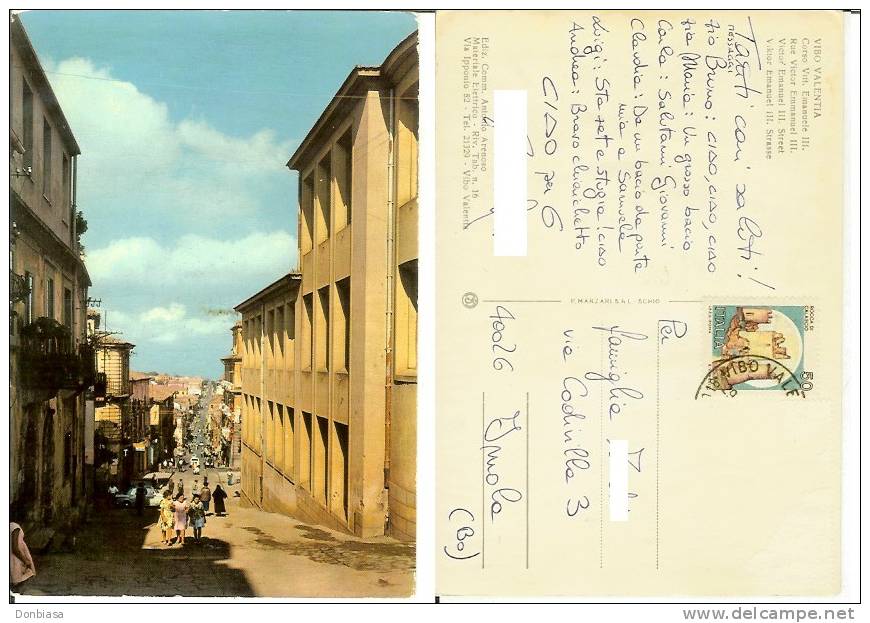 VIBO VALENTIA
Corso Vitt. Emanuele III.
Rue Victor Emmanuel III.
Victor Emanuel III. Street
Viktor Emanuel III. Strasse
Tanti cari saluti!
MESSAGGI
zio Bruno: CIAO, CIAO, CIAO
zia Maria: Un grosso bacio
Carla: Salutami Giovanni
Claudia: Da un bacio da parte
mia a Samuele
Luigi: Sta retto e studia! CIAO
Andrea: Bravo chierichetto
CIAO per 6
Ediz. Comm. Antonio Arenoso
Materiale Elettrico - Riv. Tab. n. 16
Via Ipponio 82 - Tel. 21329 - Vibo Valentia
F. MANZARI S.R.L. - SCHIO
ROCCA DI
CALASCIO
50
ITALIA
VIBO VALE
Per
famiglia
via Cadivilla 3
40026 Imola
(Bo)
Donbiasa
www.delcampe.net